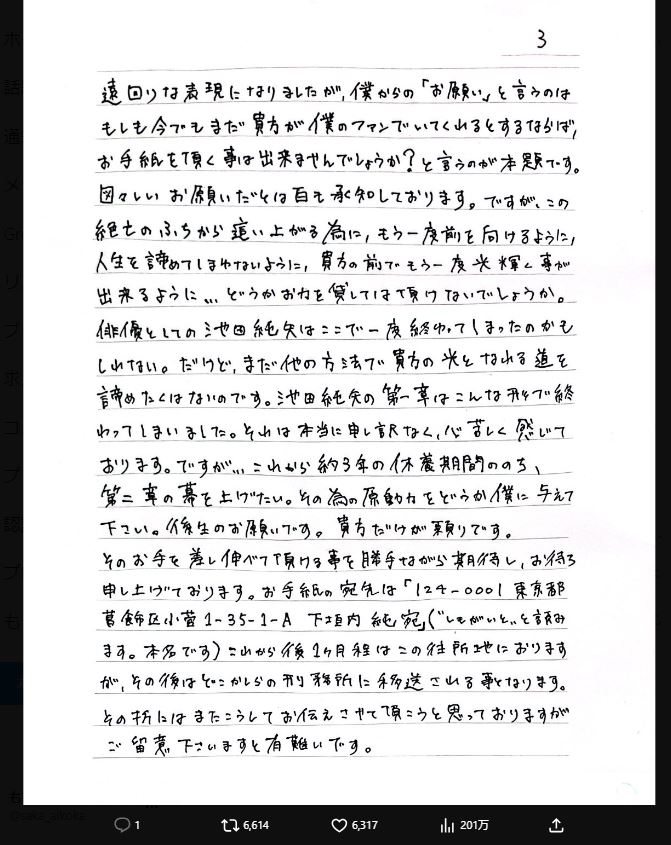 3
遠回りな表現になりましたが、僕からの「お願い」と言うのは
もしも今でもまだ貴方が僕のファンでいてくれるとするならば、
お手紙を頂く事は出来ませんでしょうか?と言うのが本題です。
図々しいお願いだとは百も承知しております。ですが、この
絶望のふちから這い上がる為に、もう一度前を向けるように、
人生を諦めてしまわないように、貴方の前でもう一度光輝く事が
出来るように…どうかお力を貸しては頂けないでしょうか。
俳優としての池田純矢はここで一度終わってしまったのかも
しれない。だけど、まだ他の方法で貴方の光となれる道を
諦めたくはないのです。池田純矢の第一章はこんな形で終
わってしまいました。それは本当に申し訳なく、心苦しく感じて
おります。ですが…これから約3年の休養期間ののち、
第二章の幕を上げたい。その為の原動力をどうか僕に与えて
下さい。後生のお願いです。貴方だけが頼りです。
そのお手を差し伸べて頂ける事を勝手ながら期待し、お待ち
申し上げております。お手紙の宛先は「124-0001 東京都
葛飾区小菅1-35-1-A 下垣内 純宛」(“しもがいと”と読み
ます。本名です)これから後1ヶ月程はこの住所地におります
が、その後はどこかしらの刑務所に移送される事となります。
その折にはまたこうしてお伝えさせて頂こうと思っておりますが
ご留意下さいますと有難いです。
@saka_aikoka
1 6,614 6,317 201万